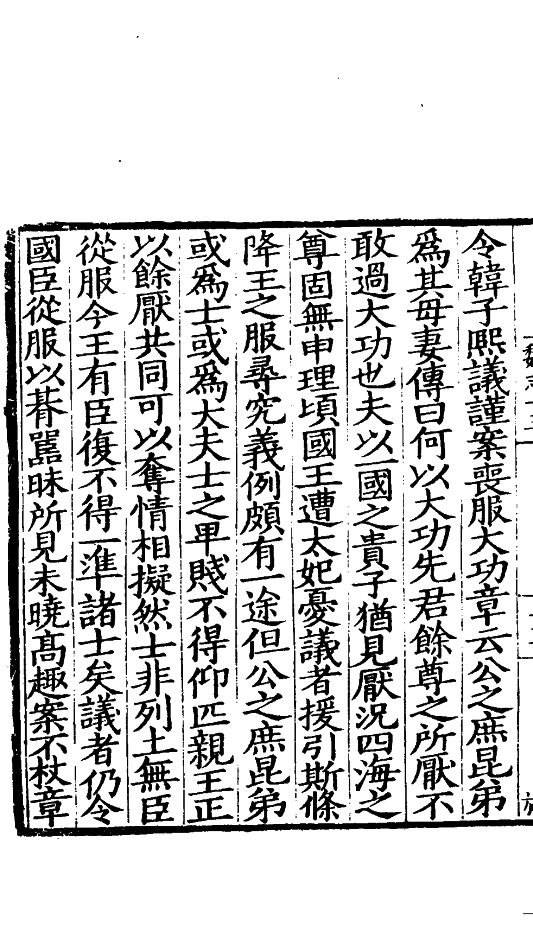 令韓子熙議謹案喪服大功章云公之庶昆弟
爲其母妻傳曰何以大功先君餘尊之所厭不
敢過大功也夫以一國之貴子猶見厭況四海之
尊固無申理頃國王遭太妃憂議者援引斯條
降王之服尋究義例頗有一途但公之庶昆弟
或爲士或爲大夫士之卑賤不得仰匹親王正
以餘厭共同可以奪情相擬然士非列土無臣
從服今王有臣復不得一準諸士矣議者仍令
國臣從服以朞嚚昧所見未曉高趣案不杖章